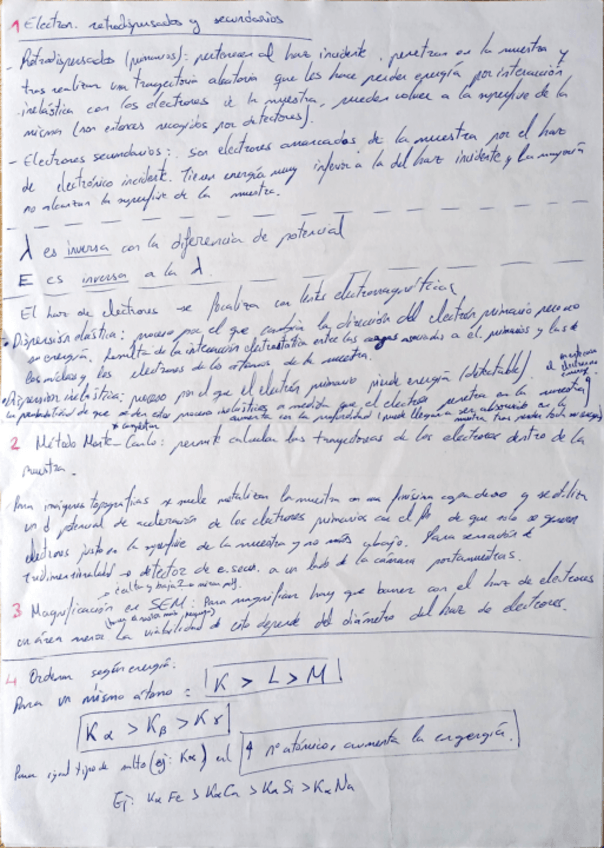 1 Electron. retrodispersados y secundarios
- Retrodispersados (primarios): pertenecen al haz incidente, penetran en la muestra y
tras realizar una trayectoria aleatoria que les hace perder energía por interacción
inelástica con los electrones de la muestra, pueden volver a la superficie de la
misma (son entonces recogidos por detectores).
- Electrones secundarios: son electrones arrancados de la muestra por el haz
de electrónico incidente. Tienen energía muy inferior a la del haz incidente y la mayoría
no alcanzan la superficie de la muestra.
λ es inversa con la diferencia de potencial
E es inversa a la λ.
El haz de electrones se focaliza con lentes electromagnéticas
• Dispersión elástica: proceso por el que cambia la dirección del electrón primario pero no
su energía. Resulta de la interacción electrostática entre las cargas asociadas a el primarios y las de
los núcleos y los electrones de los átomos de la muestra.
• Dispersión inelástica: proceso por el que el electrón primario pierde energía (detectable).
la probabilidad de que se den estos procesos inelásticos a medida que el electrón penetra en la muestra
aumenta con la profundidad (puede llegar a ser absorbido en la
muestra tras perder toda su energía)
2 Método Monte-Carlo: permite calcular las trayectorias de los electrones dentro de la
muestra.
Para imágenes topográficas se suele metalizar la muestra con una finísima capa de oro y se utiliza
un d potencial de aceleración de los electrones primarios con el fin de que solo se generen
electrones justo en la superficie de la muestra y no más abajo. Para sensación de
tridimensionalidad → detector de e. secun. a un lado de la cámara portamuestras.
3 Magnificación en SEM: Para magnificar hay que barrer con el haz de electrones
un área menor la viabilidad de esto depende del diámetro del haz de electrones.
4 Ordenar según energía.
Para un mismo átomo = K > L > M
Kα > Kβ > Kγ
Para igual tipo de salto (ej: Kα) al ↑ nº atómico, aumenta la engergía.
Ej: Kα Fe > Kα Ca > Kα Si > Kα Na